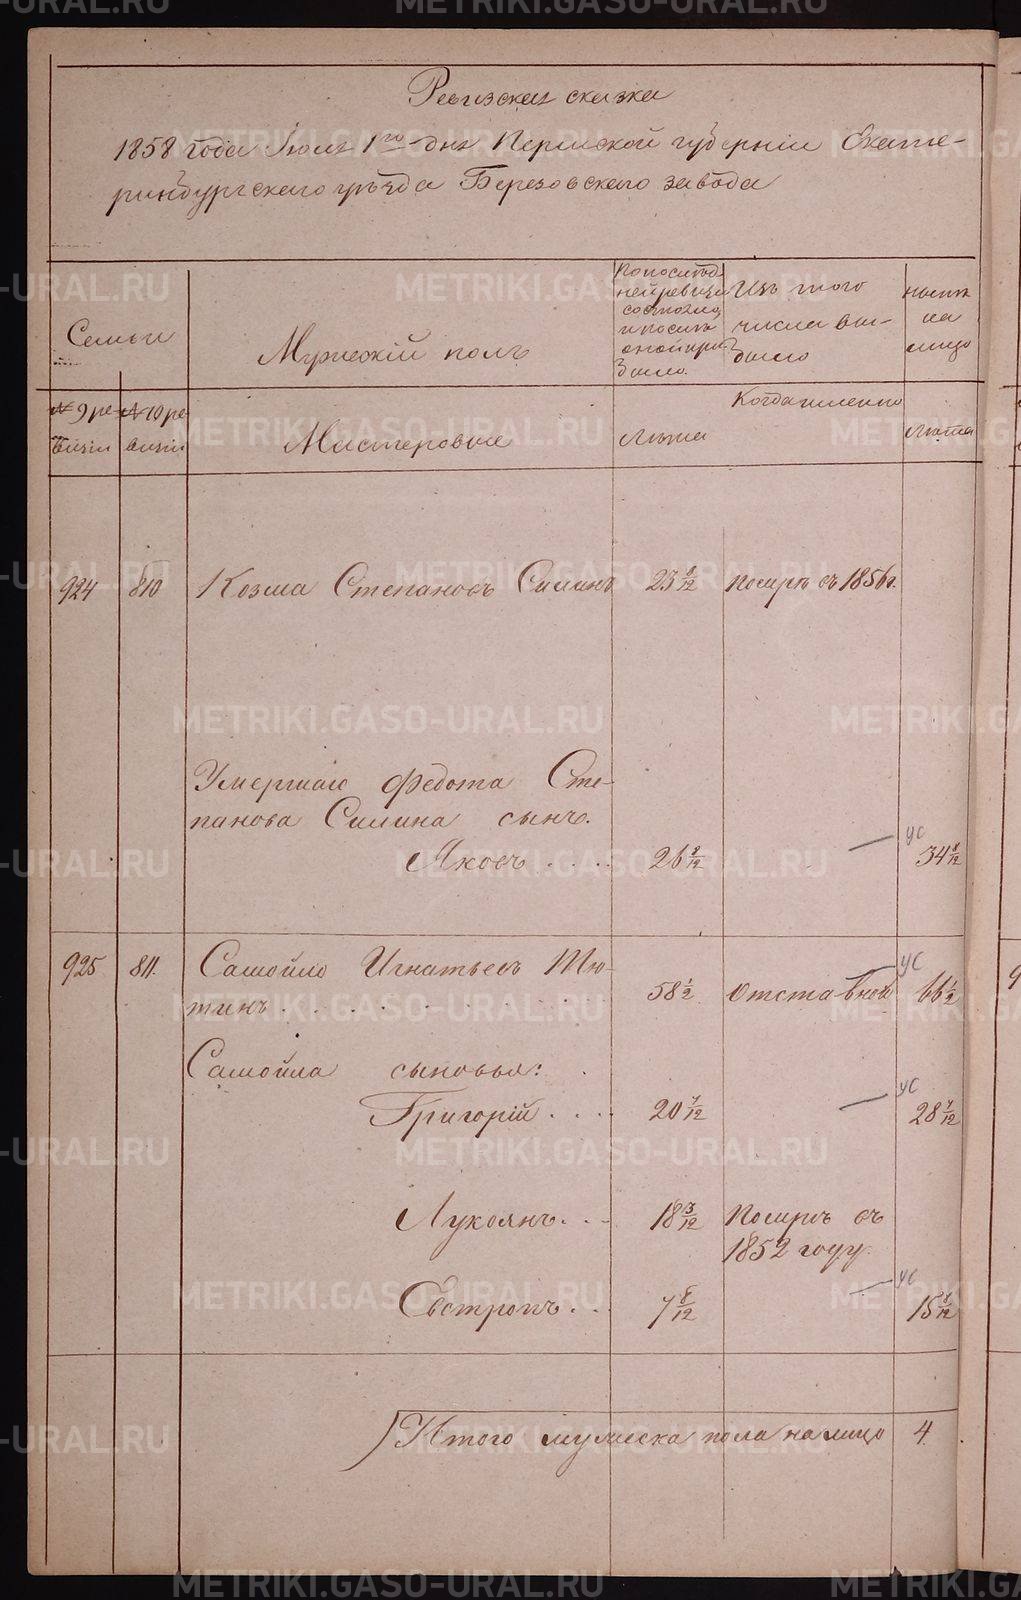 Ревизская сказка
1858 года Іюля 1го дня Пермской губерніи Екате-
ринбургскаго уѣзда Березовскаго завода
Семьи
Мужескій полъ
По послѣд
ней ревизіи
состояло
и послѣ
оной при
было.
Изъ того
числа вы-
было
нынѣ
на
лицо
№ 9 ре
визіи
№ 10 ре
визіи
Мастеровые
Лѣта
Когда именно
Лѣта
924 810 Козма Степановъ Силинъ 23 8/12 померъ въ 1856 г.
Умершаго Федота Сте-
панова Силина сынъ.
Яковъ . . . . 26 8/12 — ус 34 8/12
925 811. Самойло Игнатьевъ Тю-
тинъ . . . . . . . . 58 1/2 отставной ус 66 1/2
Самойла сыновья:
Григорій . . . . 20 7/12 — ус 28 7/12
Лукоянъ . . . 18 3/12 Померъ въ
1852 году.
Евстропъ . . . 7 8/12 — ус 15 8/12
Итого мужеска пола на лицо 4
METRIKI.GASO-URAL.RU